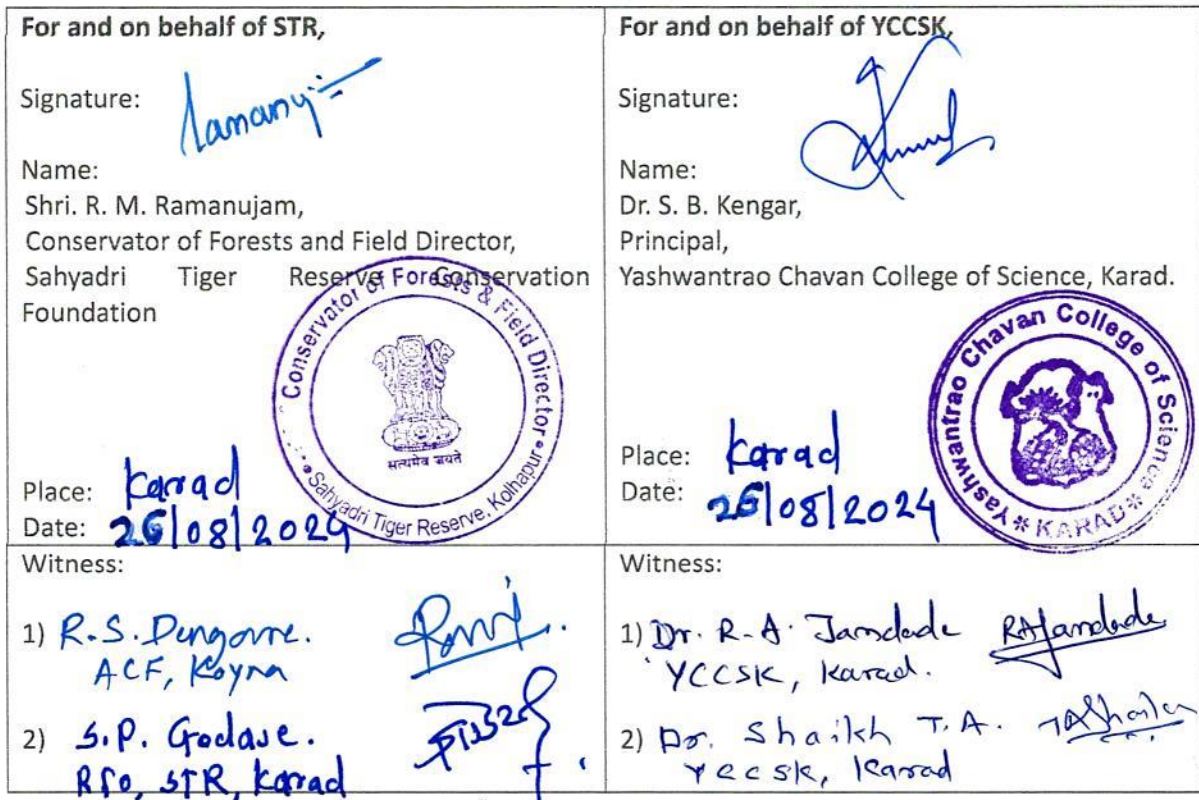 For and on behalf of STR,
Signature:
Name:
Shri. R. M. Ramanujam,
Conservator of Forests and Field Director,
Sahyadri Tiger Reserve Conservation
Foundation
Conservator of Forests & Field Director
सत्यमेव जयते
Sahyadri Tiger Reserve, Kolhapur
Place: Karad
Date: 26/08/2024
For and on behalf of YCCSK,
Signature:
Name:
Dr. S. B. Kengar,
Principal,
Yashwantrao Chavan College of Science, Karad.
Yashwantrao Chavan College of Science
* KARAD *
Place: Karad
Date: 26/08/2024
Witness:
1) R.S.
ACF, Koyna
2) S.P. Godase.
RFO, STR, Karad
Witness:
1) Dr. R. A. Jamdade RAJamdade
YCCSK, Karad.
2) Dr. Shaikh T.A. TAShaikh
YCCSK, Karad